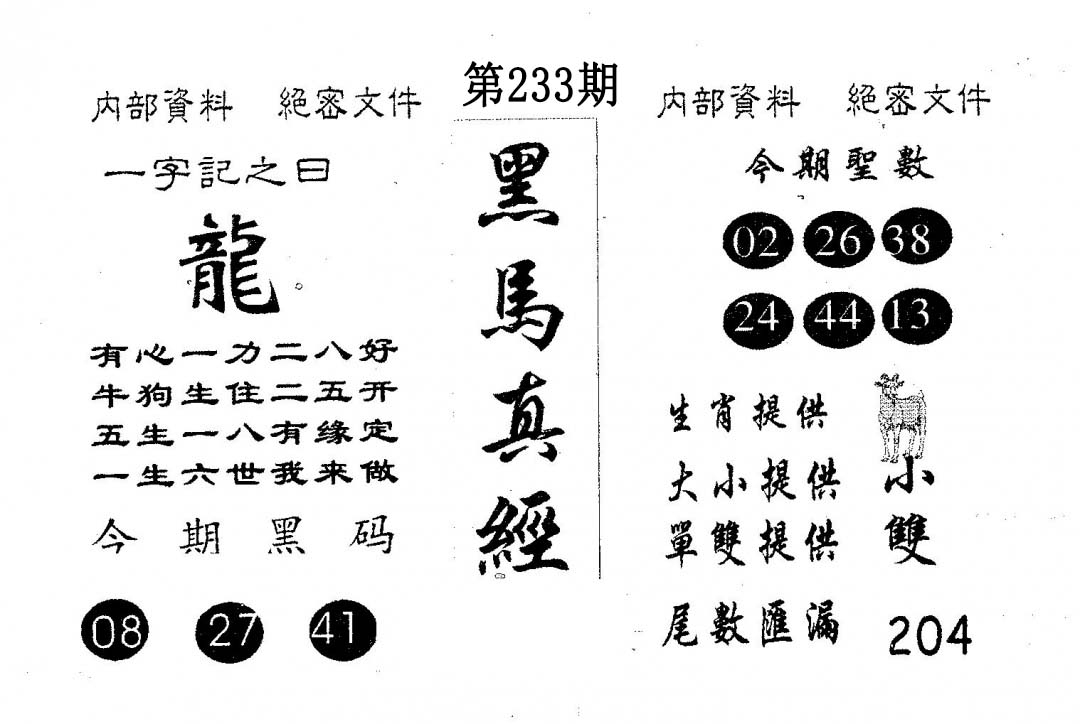 第233期
内部資料 絕密文件
一字記之曰
龍
有心一力二八好
牛狗生住二五开
五生一八有缘定
一生六世我来做
今期黑码
08 27 41
黑馬真經
内部資料 絕密文件
今期聖數
02 26 38
24 44 13
生肖提供
大小提供 小
單雙提供 雙
尾數匯漏 204